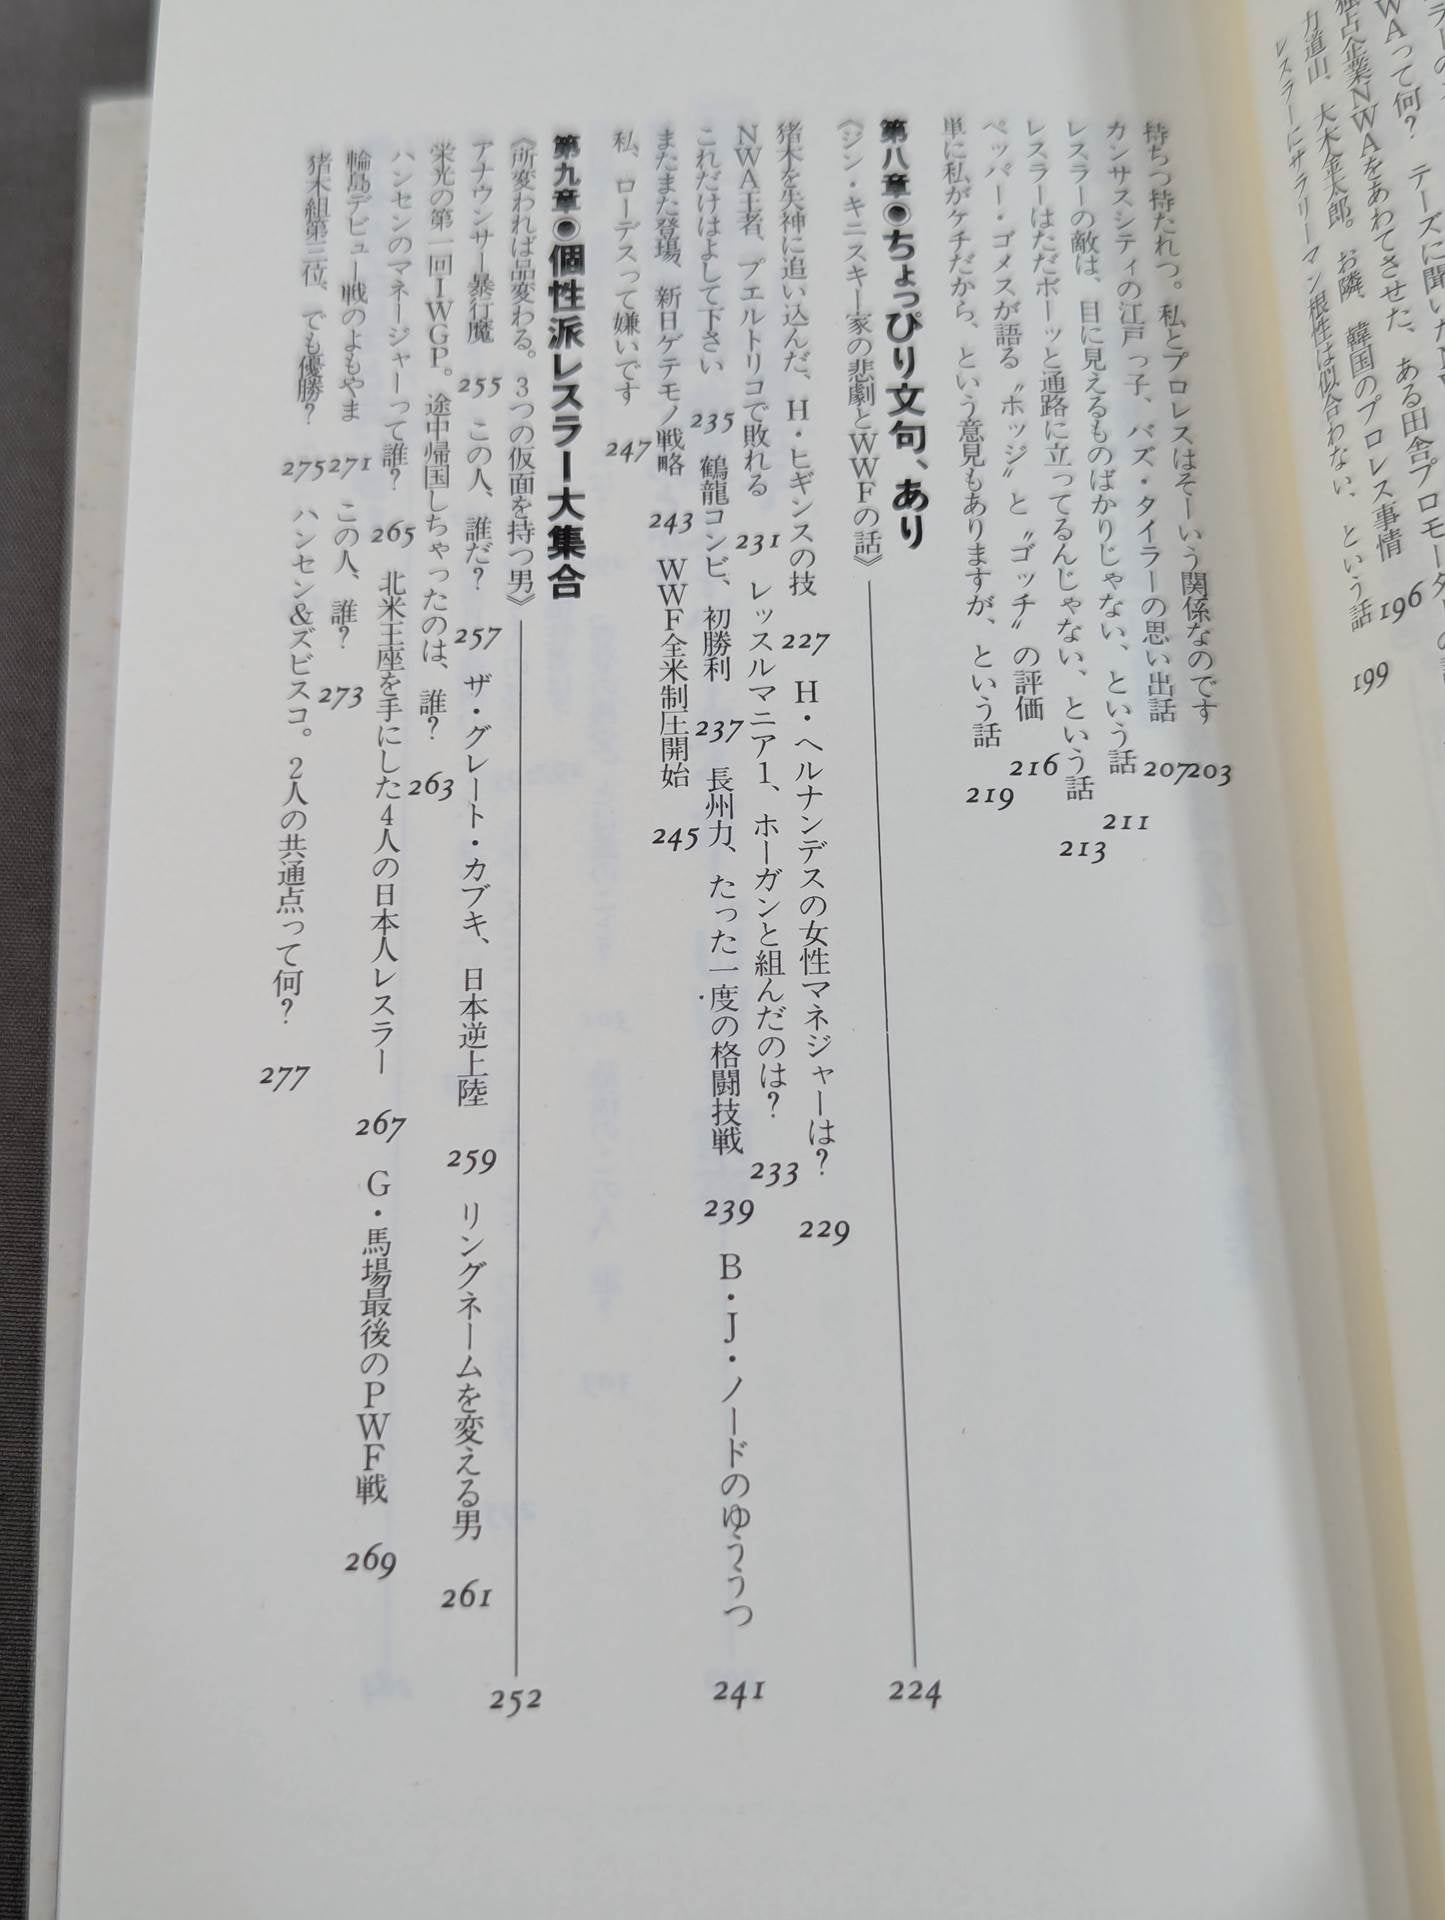 WAって何？　テーズに聞いた
独占企業NWAをあわてさせた、ある田舎プロモーター
力道山、大木金太郎。お隣、韓国のプロレス事情　196
レスラーにサラリーマン根性は似合わない、という話　199
持ちつ持たれつ。私とプロレスはそーいう関係なのです　203
カンサスシティの江戸っ子、バズ・タイラーの思い出話　207
レスラーの敵は、目に見えるものばかりじゃない、という話　211
レスラーはただボーッと通路に立ってるんじゃない、という話　213
ペッパー・ゴメスが語る〝ホッジ〟と〝ゴッチ〟の評価　216
単に私がケチだから、という意見もありますが、という話　219
第八章●ちょっぴり文句、あり
《ジン・キニスキー家の悲劇とWWFの話》　224
猪木を失神に追い込んだ、H・ヒギンスの技　227　H・ヘルナンデスの女性マネジャーは？　229
NWA王者、プエルトリコで敗れる　231　レッスルマニア1、ホーガンと組んだのは？　233
これだけはよして下さい　235　鶴龍コンビ、初勝利　237　長州力、たった一度の格闘技戦　239　B・J・ノードのゆううつ　241
またまた登場、新日ゲテモノ戦略　243　WWF全米制圧開始　245
私、ローデスって嫌いです　247
第九章●個性派レスラー大集合
《所変われば品変わる。3つの仮面を持つ男》　252
アナウンサー暴行魔　255　この人、誰だ？　257　ザ・グレート・カブキ、日本逆上陸　259　リングネームを変える男　261
栄光の第一回IWGP。途中帰国しちゃったのは、誰？　263
ハンセンのマネージャーって誰？　265　北米王座を手にした4人の日本人レスラー　267　G・馬場最後のPWF戦　269
輪島デビュー戦のよもやま　271　この人、誰？　273
猪木組第三位、でも優勝？　275　ハンセン&ズビスコ。2人の共通点って何？　277